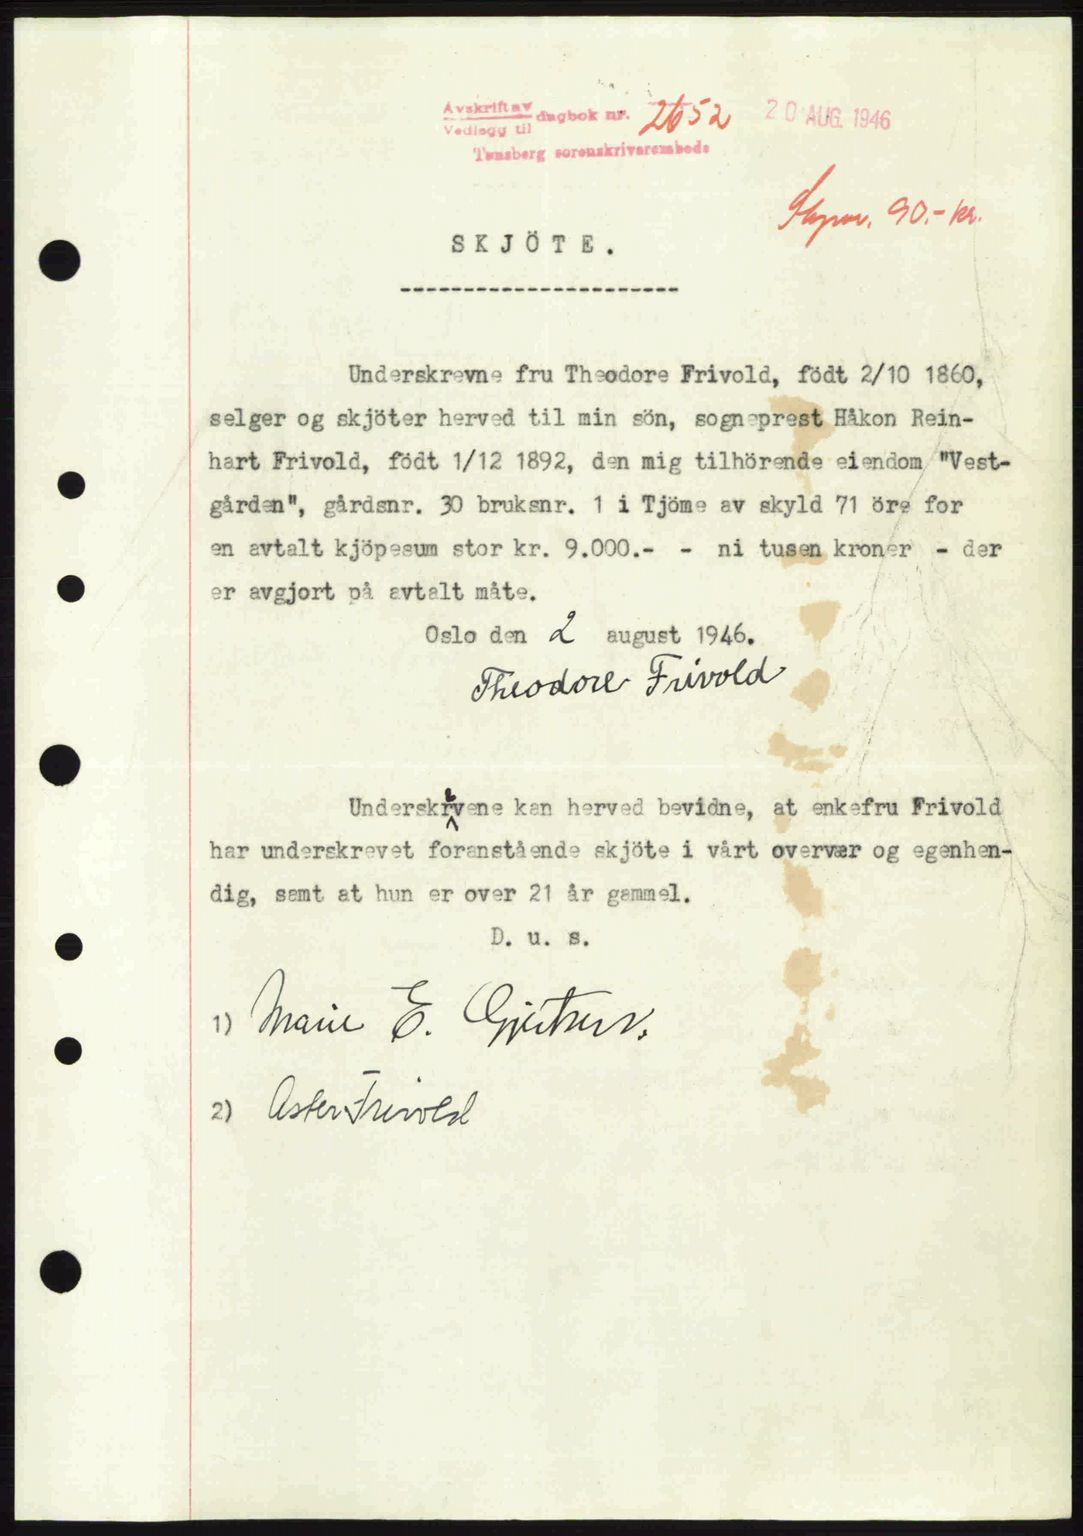 Avskrift av
Vedlegg til dagbok nr. 2652 20 AUG. 1946
Tønsberg sorenskriverembede
90.- kr.
SKJÖTE.
----------------------
Underskrevne fru Theodore Frivold, födt 2/10 1860,
selger og skjöter herved til min sön, sogneprest Håkon Rein-
hart Frivold, födt 1/12 1892, den mig tilhörende eiendom "Vest-
gården", gårdsnr. 30 bruksnr. 1 i Tjöme av skyld 71 öre for
en avtalt kjöpesum stor kr. 9.000.- - ni tusen kroner - der
er avgjort på avtalt måte.
Oslo den 2 august 1946.
Theodore Frivold
Underskrevene kan herved bevidne, at enkefru Frivold
har underskrevet foranstående skjöte i vårt overvær og egenhen-
dig, samt at hun er over 21 år gammel.
D. u. s.
1) Marie E. Gjertsen.
2) Aster Frivold